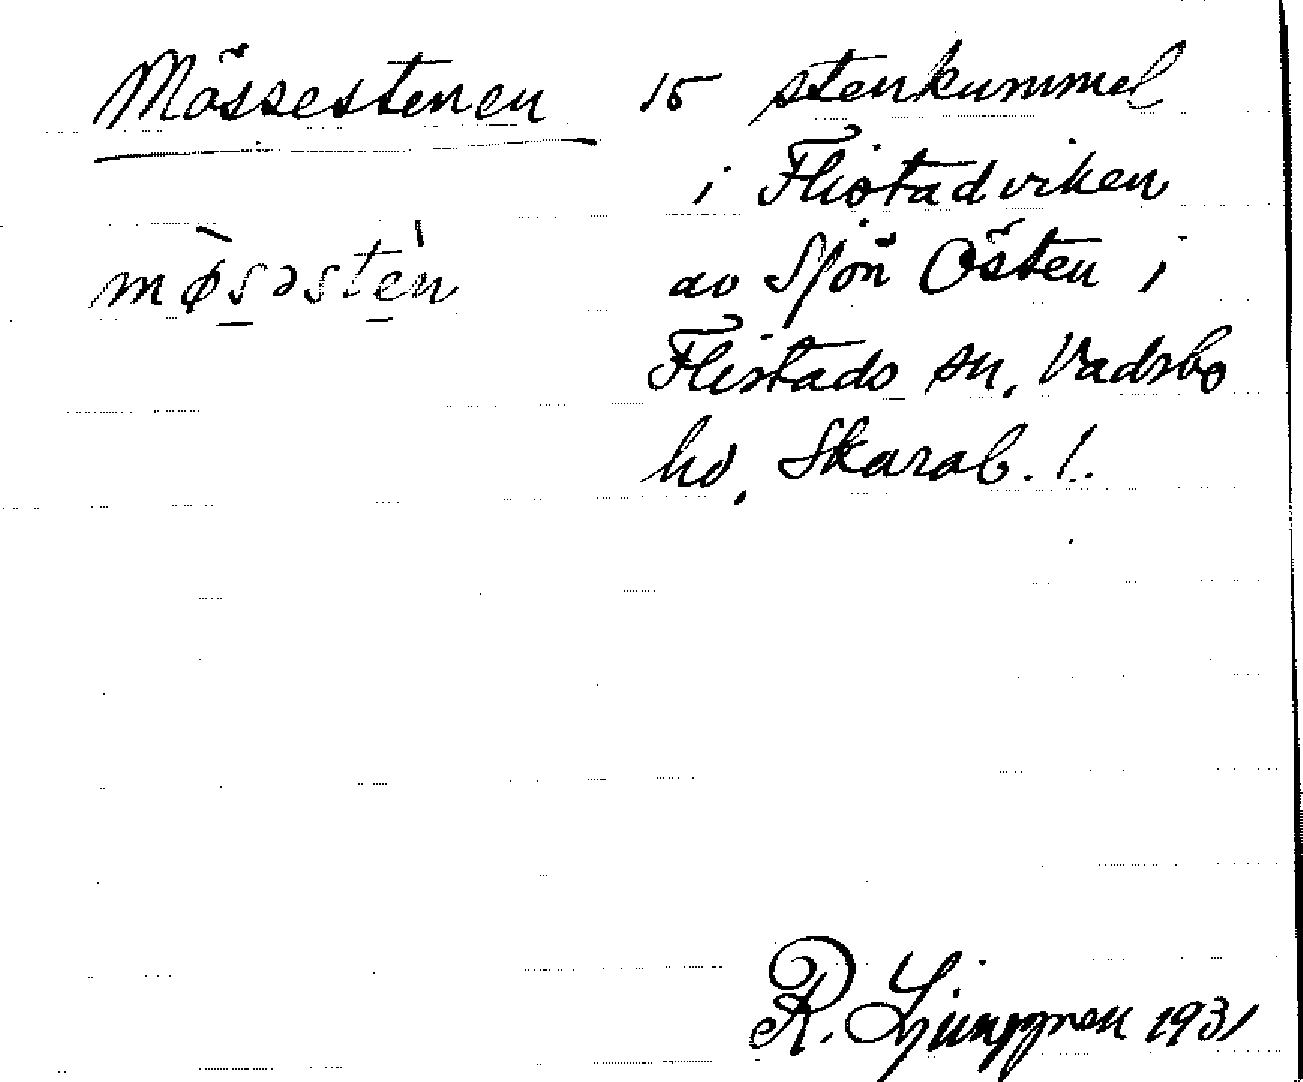 Mössestenen 15 stenkummel
i Flistadviken
av Sjön Östen i
møsəstèn
Flistads sn, Vadsbo
hd, Skarab. l.
R. Ljunggren 1931